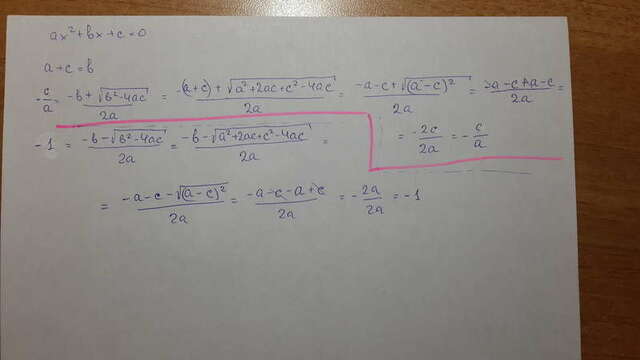 ax² + bx + c = 0
a + c = b
-c/a = (-b + √(b² - 4ac))/2a = (-(a+c) + √(a² + 2ac + c² - 4ac))/2a = (-a - c + √(a - c)²)/2a = (-a - c + a - c)/2a =
= -2c/2a = -c/a
-1 = (-b - √(b² - 4ac))/2a = (-b - √(a² + 2ac + c² - 4ac))/2a =
= (-a - c - √(a - c)²)/2a = (-a - c - a + c)/2a = -2a/2a = -1